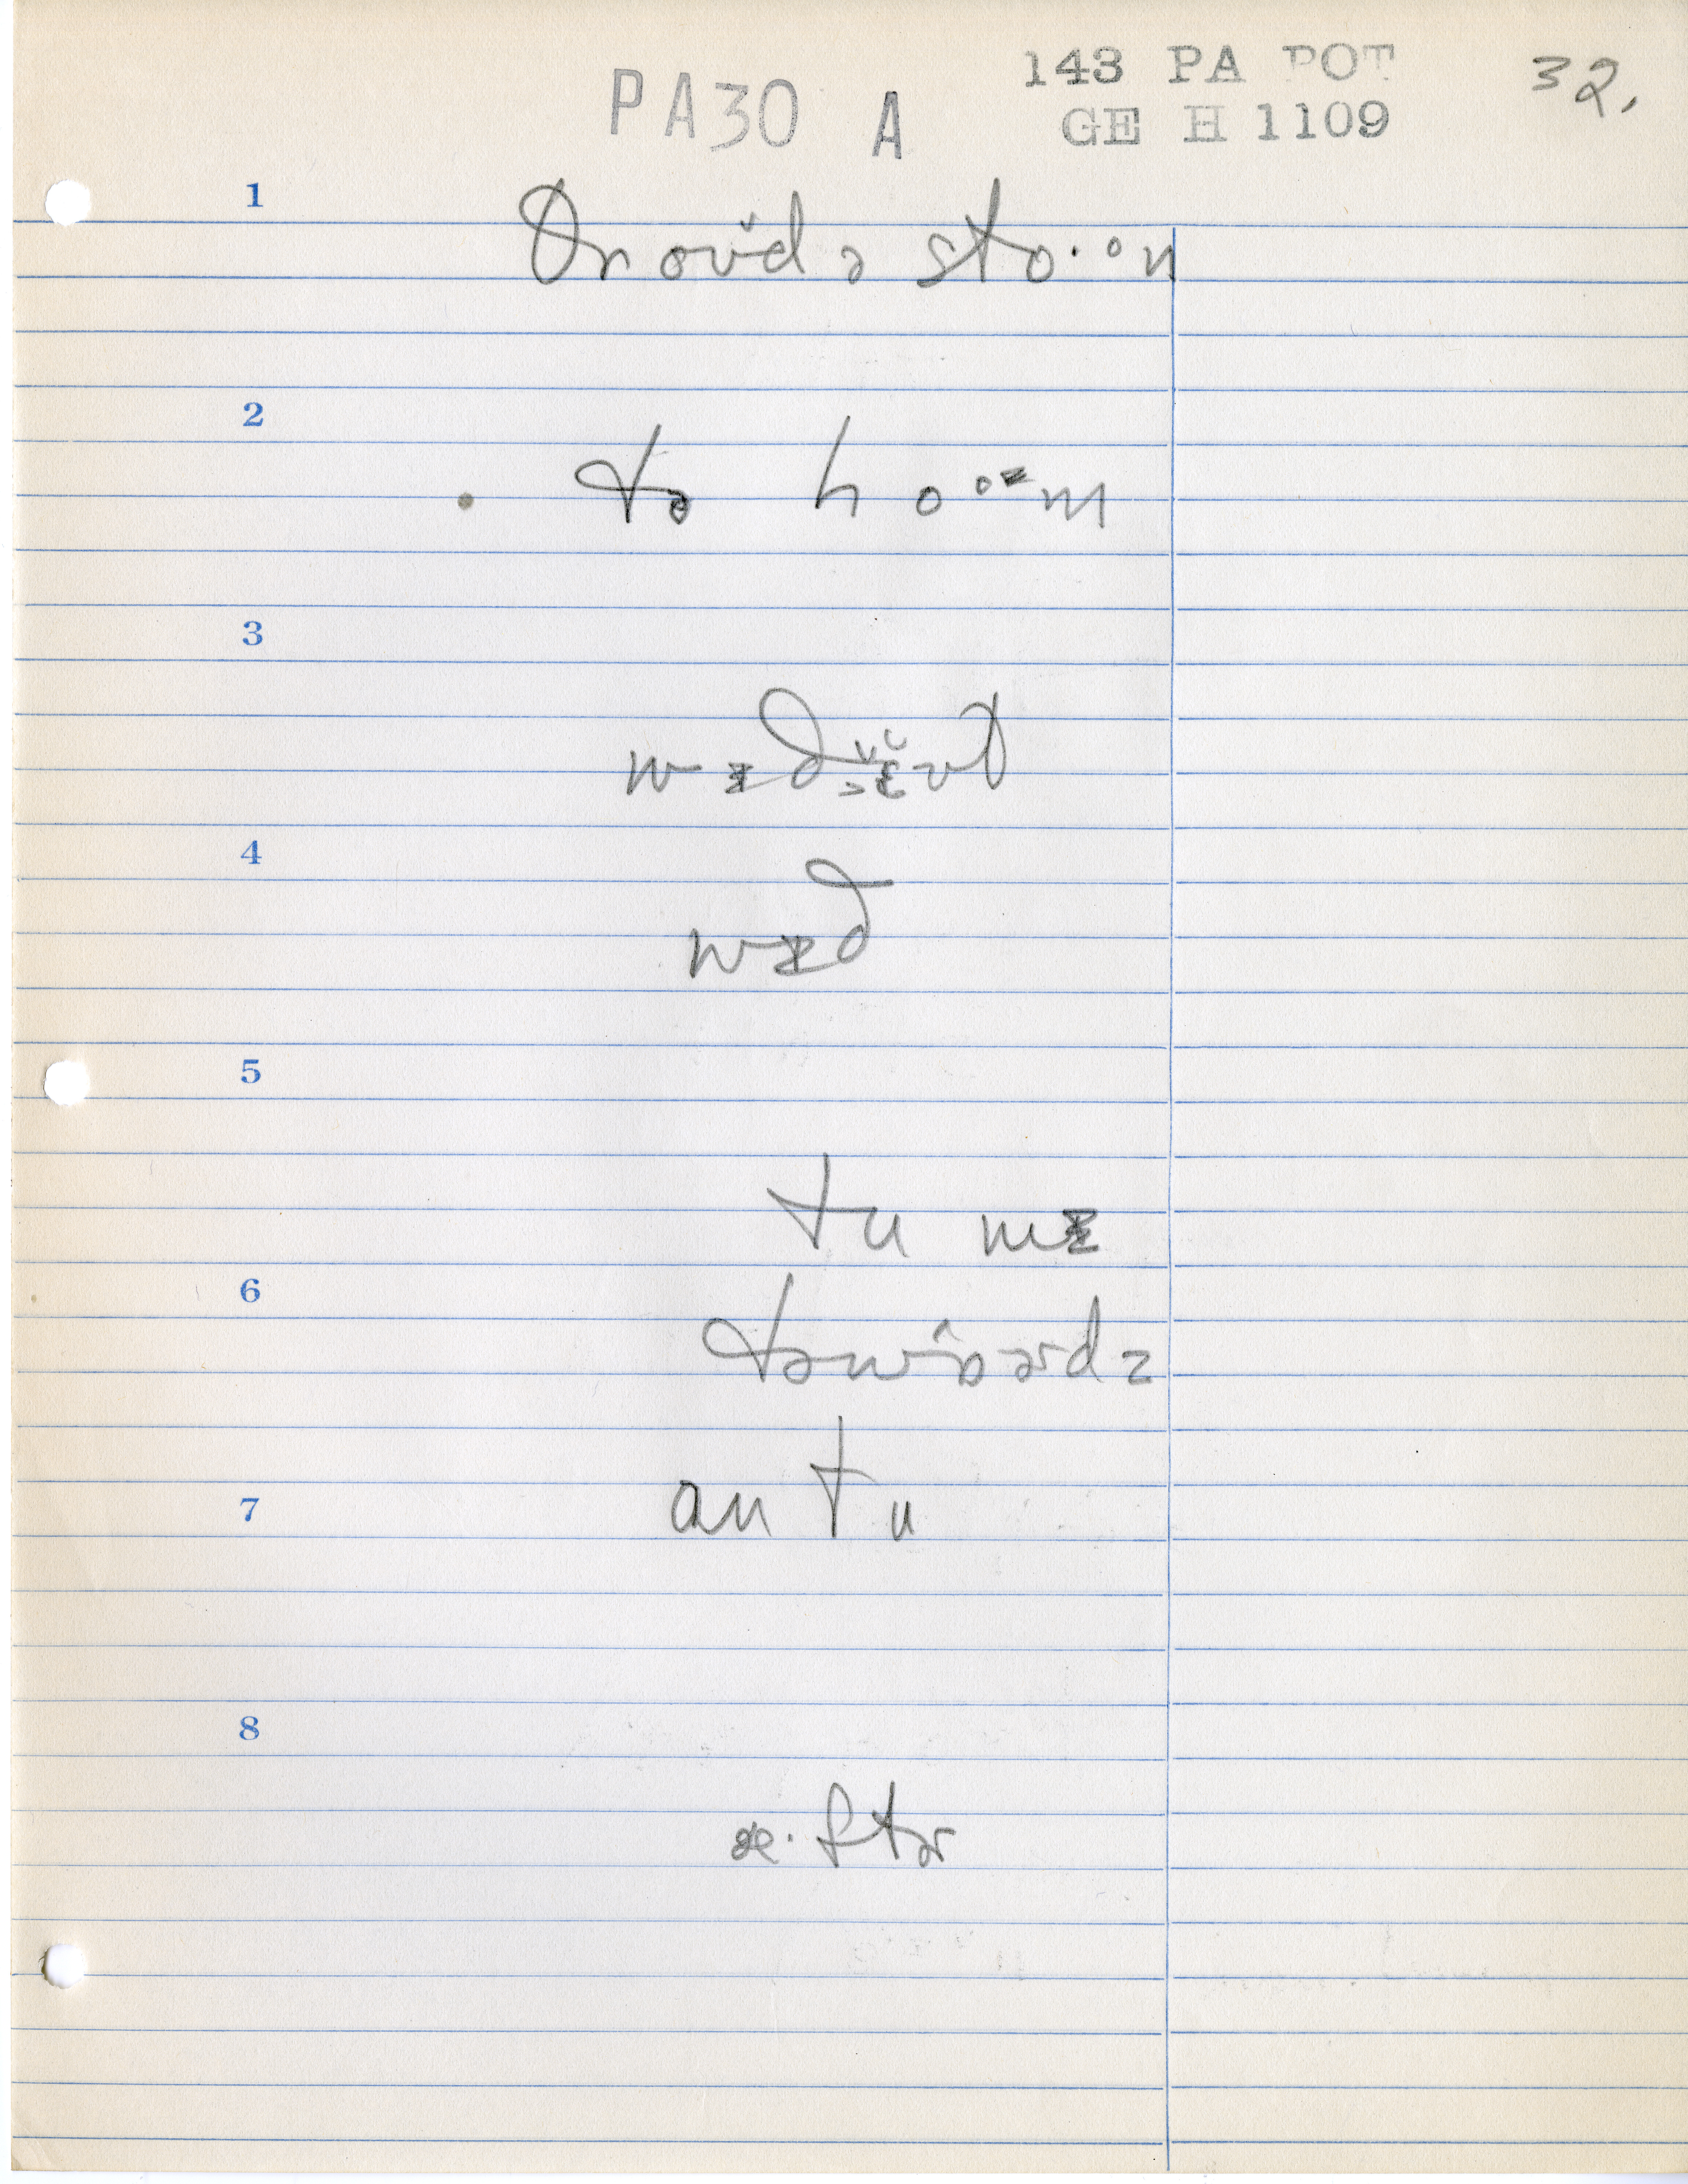 PA30 A
143 PA POT
GE H 1109
32.
1
θroʊ̆d ə sto·ᵒn
2
tə hoᵒm
3
wɪðə̆ʊ̆t
4
wɪð
5
tu mɪ
6
təwɔ̂ərdz
7
an tu
8
æ·ftɚ